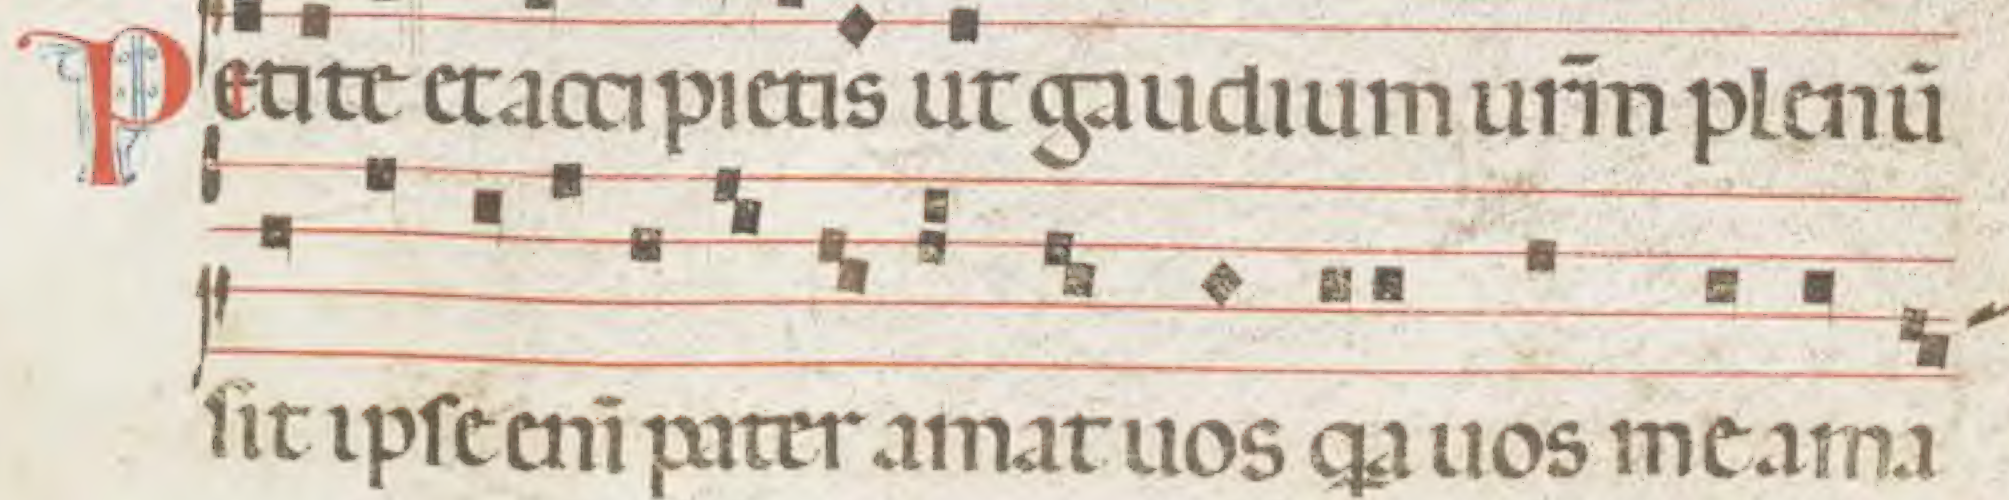 Petite et accipietis ut gaudium ur̃m plenũ
sit ipse enĩ pater amat uos qa uos me ama